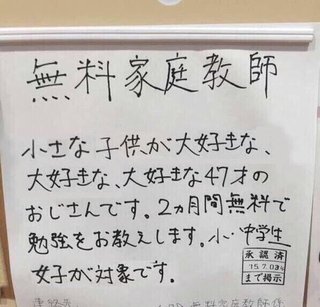 無料家庭教師
小さな子供が大好きな、
大好きな、大好きな47才の
おじさんです。2ヵ月間無料で
勉強をお教えします。小・中学生
女子が対象です。
承認済
15.7.03
まで掲示
無料家庭教師係